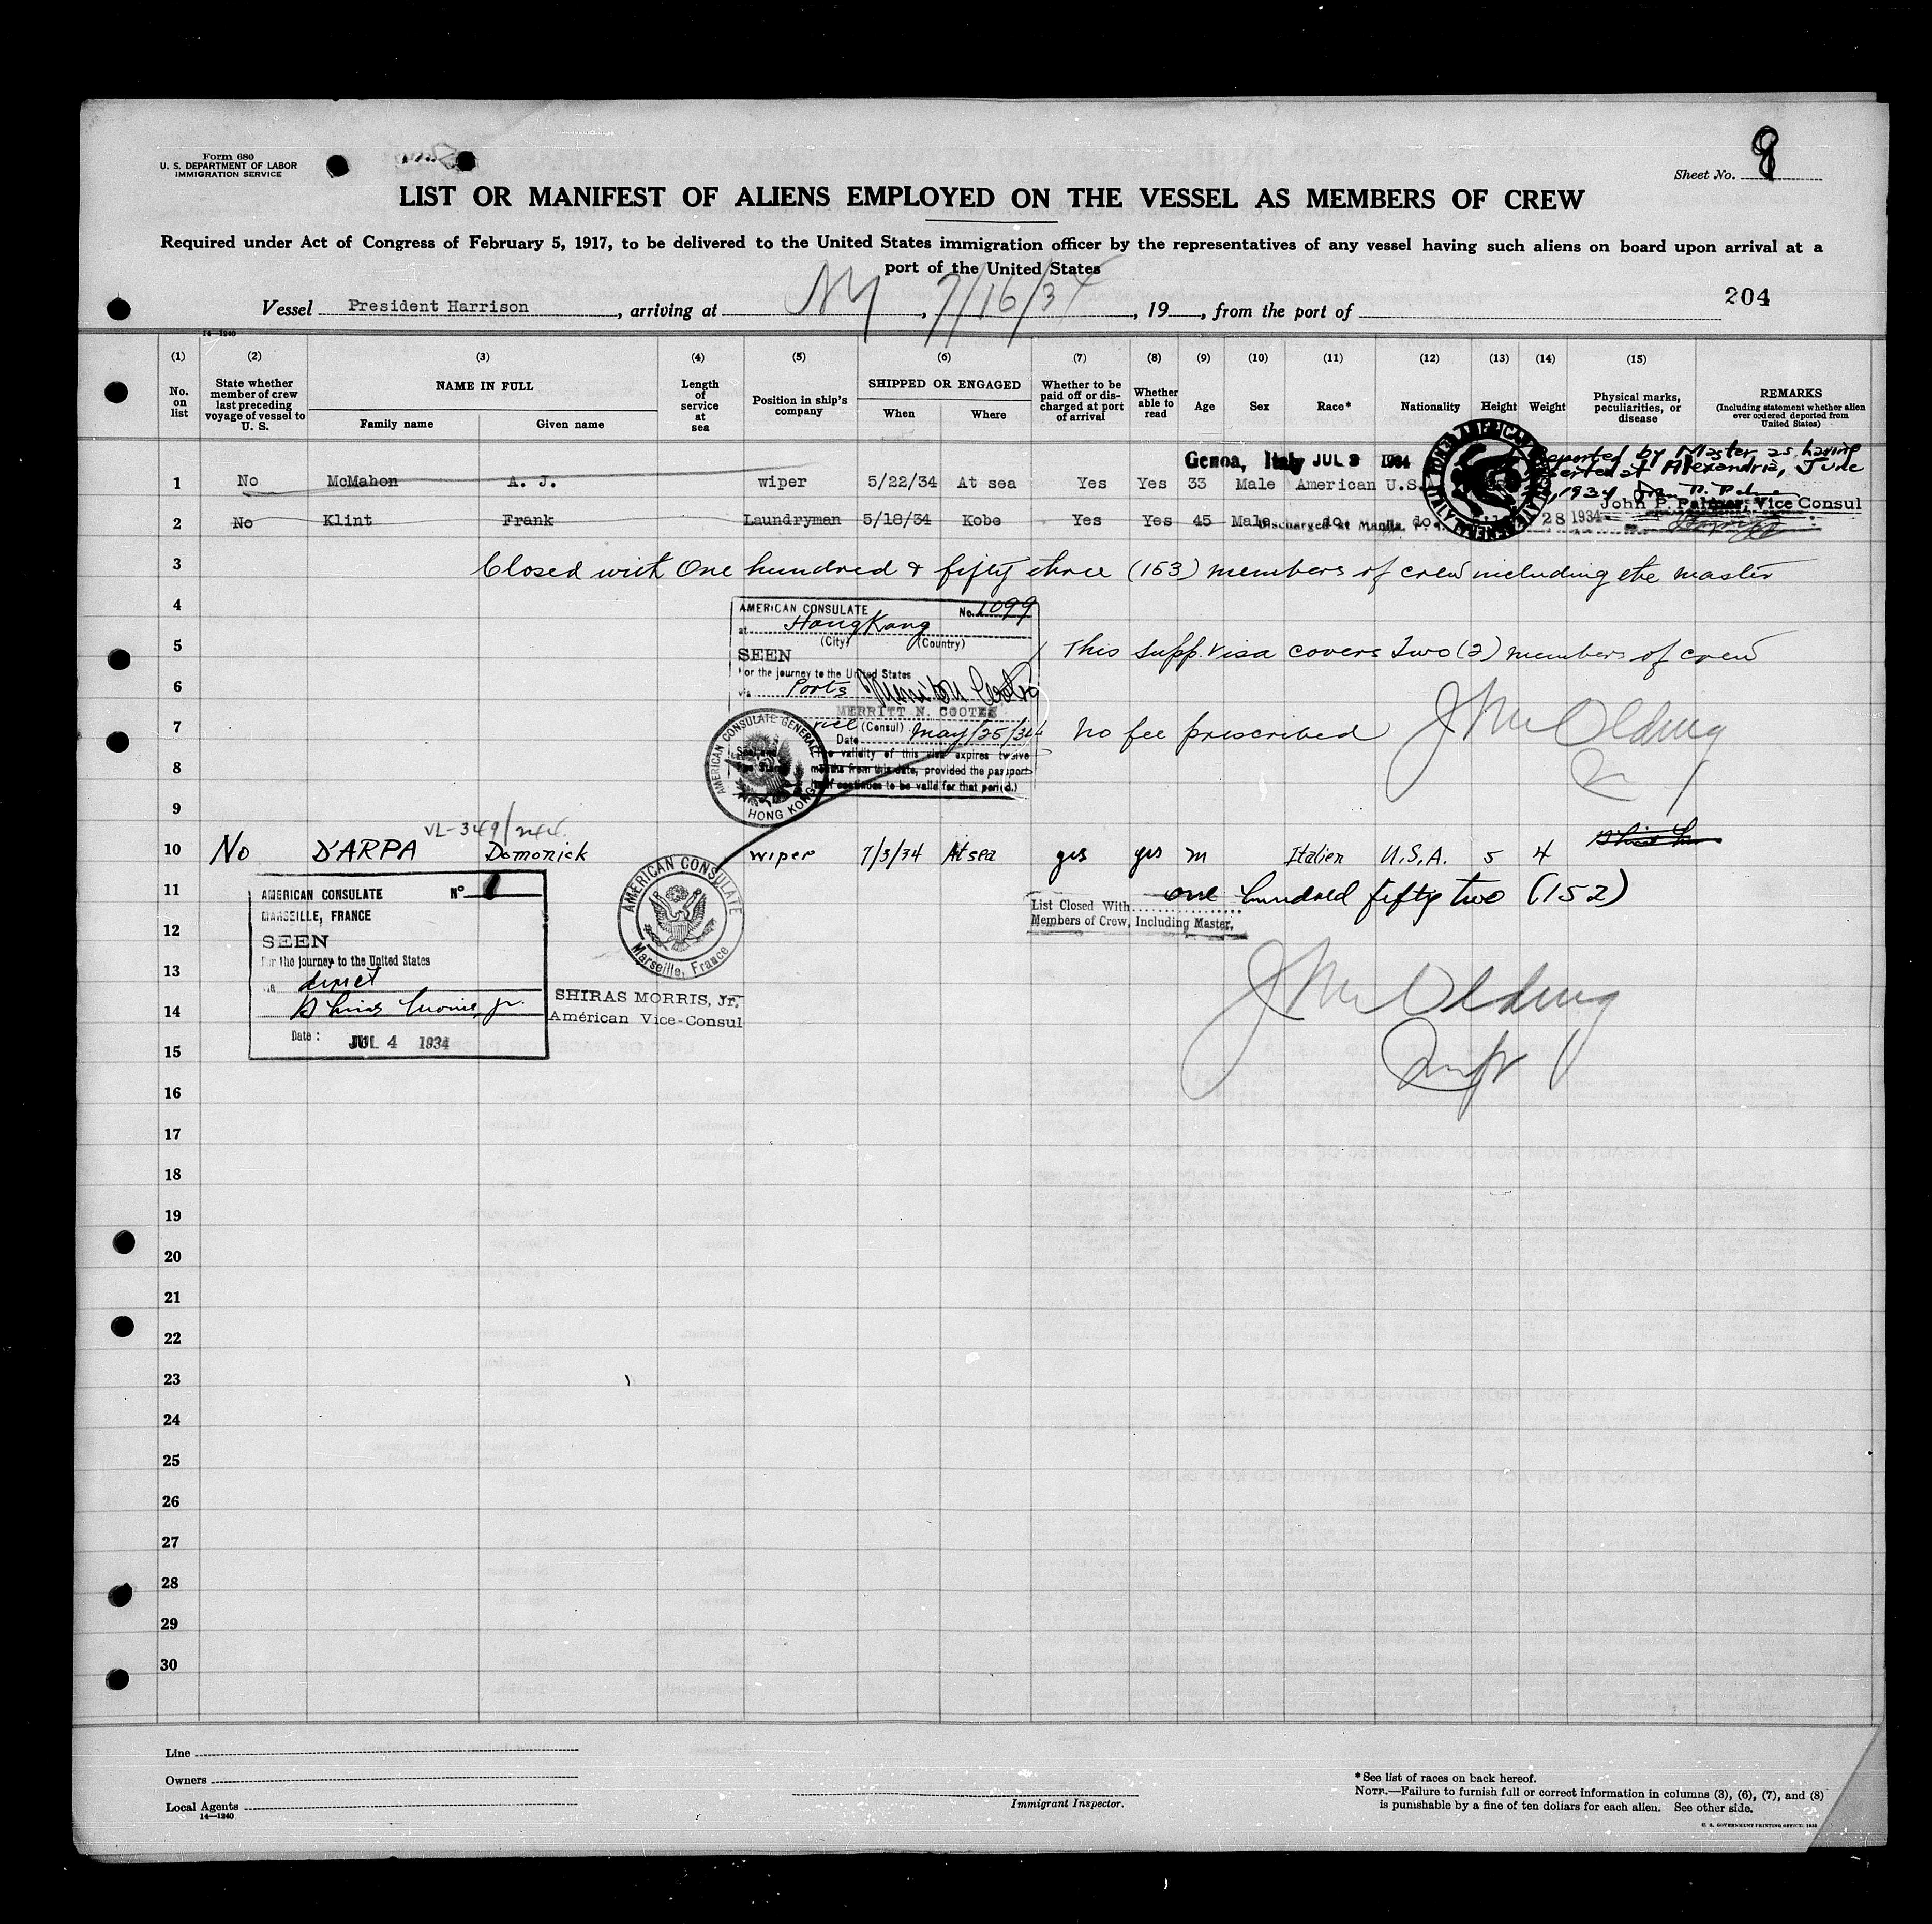 Form 680
U. S. DEPARTMENT OF LABOR
IMMIGRATION SERVICE
Sheet No. 8
LIST OR MANIFEST OF ALIENS EMPLOYED ON THE VESSEL AS MEMBERS OF CREW
Required under Act of Congress of February 5, 1917, to be delivered to the United States immigration officer by the representatives of any vessel having such aliens on board upon arrival at a
port of the United States
204
Vessel President Harrison, arriving at NY, 7/16/34, 19, from the port of
14—1240
(1) (2) (3) (4) (5) (6) (7) (8) (9) (10) (11) (12) (13) (14) (15)
No. on list
State whether member of crew last preceding voyage of vessel to U. S.
NAME IN FULL
Family name Given name
Length of service at sea
Position in ship's company
SHIPPED OR ENGAGED
When Where
Whether to be paid off or discharged at port of arrival
Whether able to read
Age Sex Race* Nationality Height Weight
Physical marks, peculiarities, or disease
REMARKS
(Including statement whether alien ever ordered deported from United States)
Genoa, Italy JUL 3 1934
Reported by Master as having
deserted at Alexandria, June
1934
John P. Palmer, Vice Consul
1 No McMahon A. J. wiper 5/22/34 At sea Yes Yes 33 Male American U.S.
2 No Klint Frank Laundryman 5/18/34 Kobe Yes Yes 45 Male do do
Discharged at Manila, P. I. 28 1934
3 Closed with One hundred & fifty three (153) members of crew including the master
4
AMERICAN CONSULATE No. 1099
at HongKong
(City) (Country)
5 This supp. visa covers Two (2) members of crew
SEEN
For the journey to the United States
6
via Ports
MERRITT N. COOTES
7 No fee prescribed J McOlding
Vice (Consul)
Date May/25/34
The validity of this visa expires twelve
8
months from this date, provided the passport
itself continues to be valid for that period.)
AMERICAN CONSULATE GENERAL
HONG KONG
9
VL-349/
10 No D'ARPA Domonick wiper 7/3/34 At sea yes yes m Italien U.S.A. 5 4
11 one hundred fifty two (152)
List Closed With
Members of Crew, Including Master.
AMERICAN CONSULATE No
MARSEILLE, FRANCE
12
SEEN
For the journey to the United States
13
via direct
Shiras Morris, Jr.
14
Date: JUL 4 1934
AMERICAN CONSULATE
Marseille, France
SHIRAS MORRIS, Jr.
Américan Vice-Consul
J McOlding
15
16
17
18
19
20
21
22
23
24
25
26
27
28
29
30
Line
Owners
Local Agents
14—1240
Immigrant Inspector.
*See list of races on back hereof.
NOTE.—Failure to furnish full or correct information in columns (3), (6), (7), and (8)
is punishable by a fine of ten dollars for each alien. See other side.
U. S. GOVERNMENT PRINTING OFFICE: